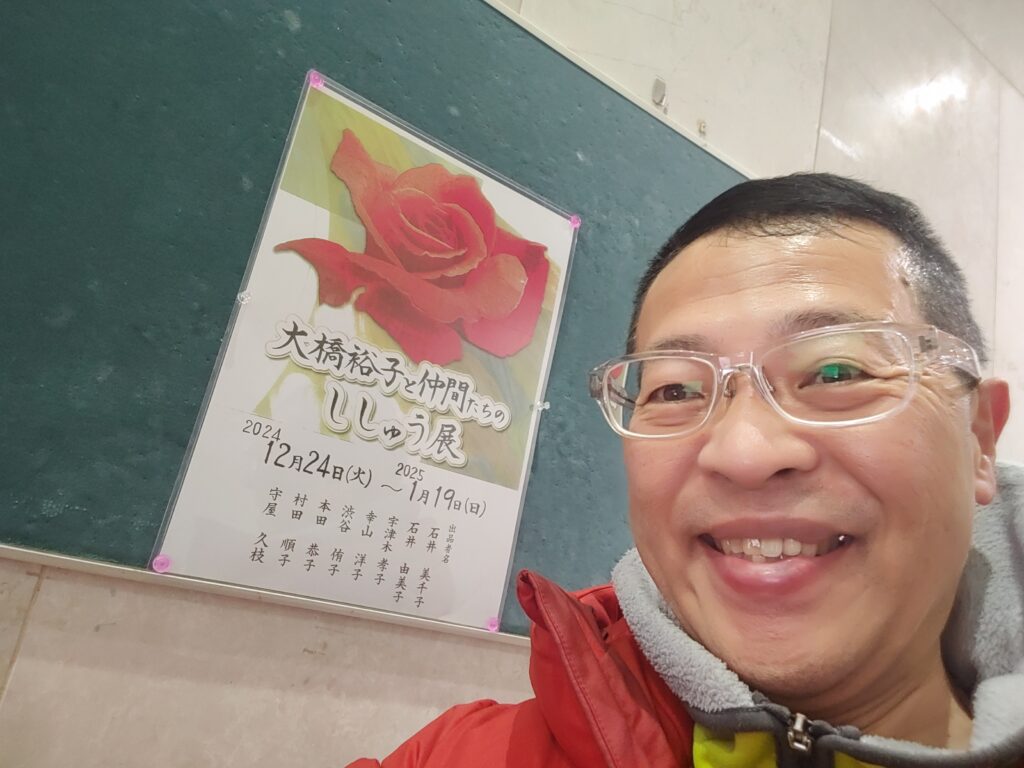 大橋裕子と仲間たちの
ししゅう展
2024 2025
12月24日(火)～1月19日(日)
出品者名
石井 美千子
石井 由美子
宇津木 孝子
幸山 洋子
渋谷 侑子
本田 恭子
村田 順子
守屋 久枝